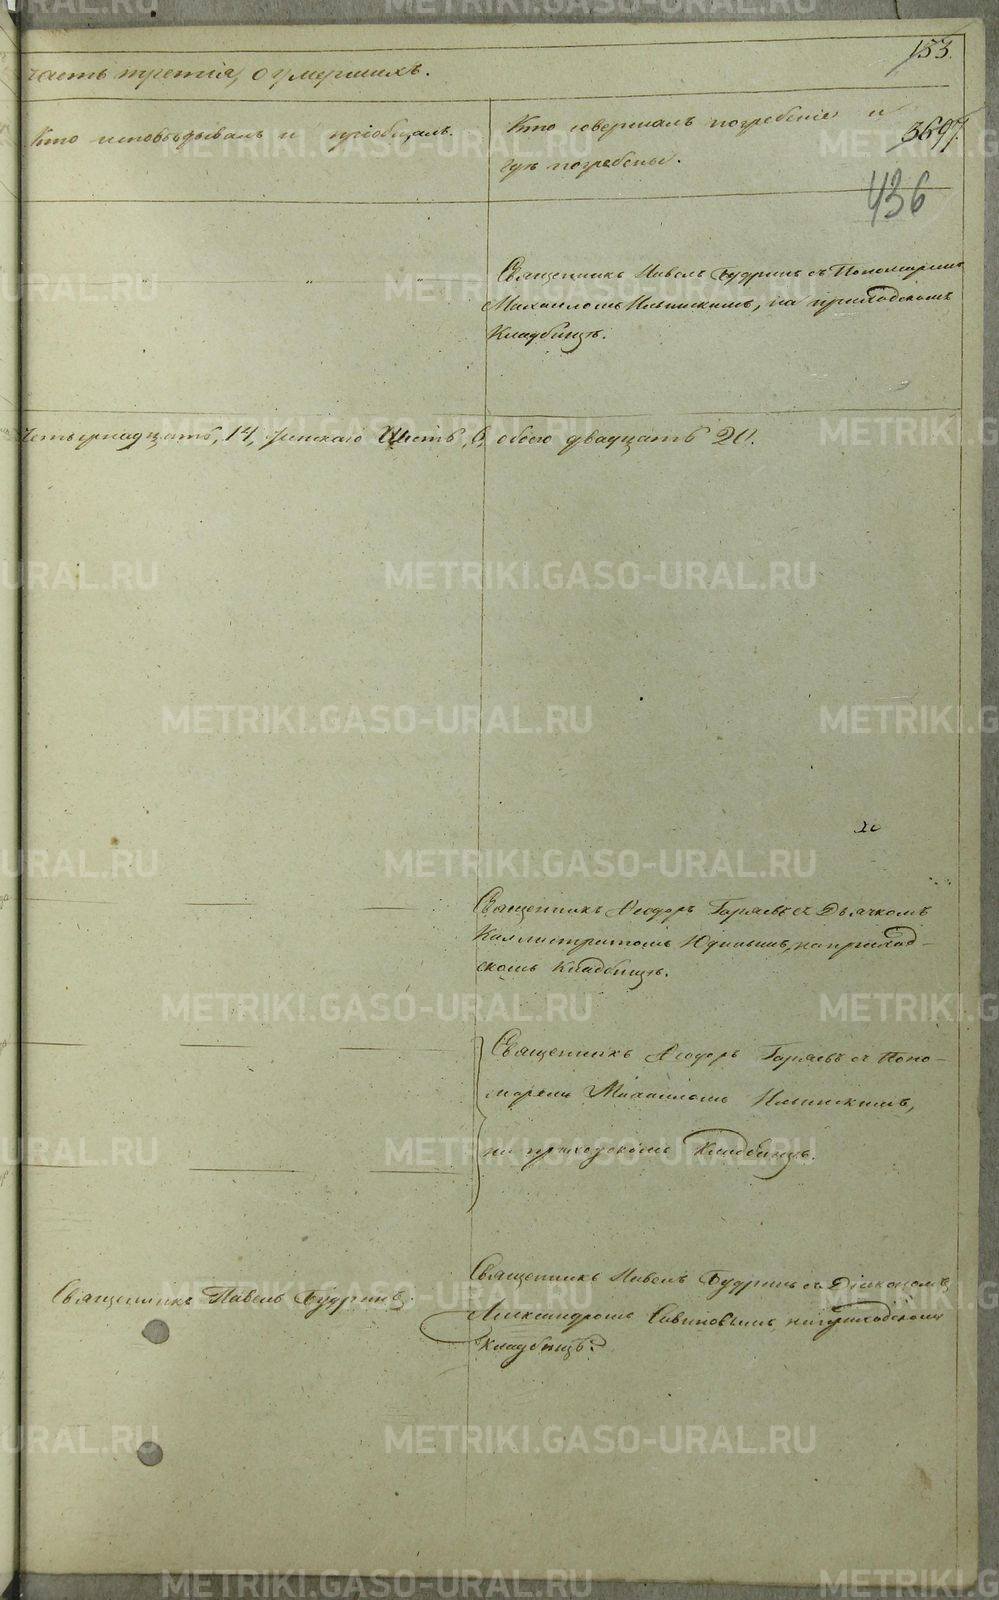 153.
часть третія, о умершихъ.
Кто исповѣдывалъ и пріобщалъ.
Кто совершалъ погребеніе и
гдѣ погребены.
3697.
436
Священникъ Павелъ Будринъ съ Пономаремъ
Михаиломъ Ильинскимъ, на приходскомъ
Кладбищѣ.
Четырнадцать, 14, женскаго Шесть, 6, обоего двадцать 20.
Священникъ Ѳеодоръ Горяевъ съ Дьячкомъ
Каллистратомъ Юдинымъ, на приход-
скомъ Кладбищѣ.
Священникъ Ѳеодоръ Горяевъ съ Поно-
маремъ Михаиломъ Ильинскимъ,
на приходскомъ Кладбищѣ.
Священникъ Павелъ Будринъ.
Священникъ Павелъ Будринъ съ Діакономъ
Александромъ Савиновымъ, на приходскомъ
Кладбищѣ.
METRIKI.GASO-URAL.RU